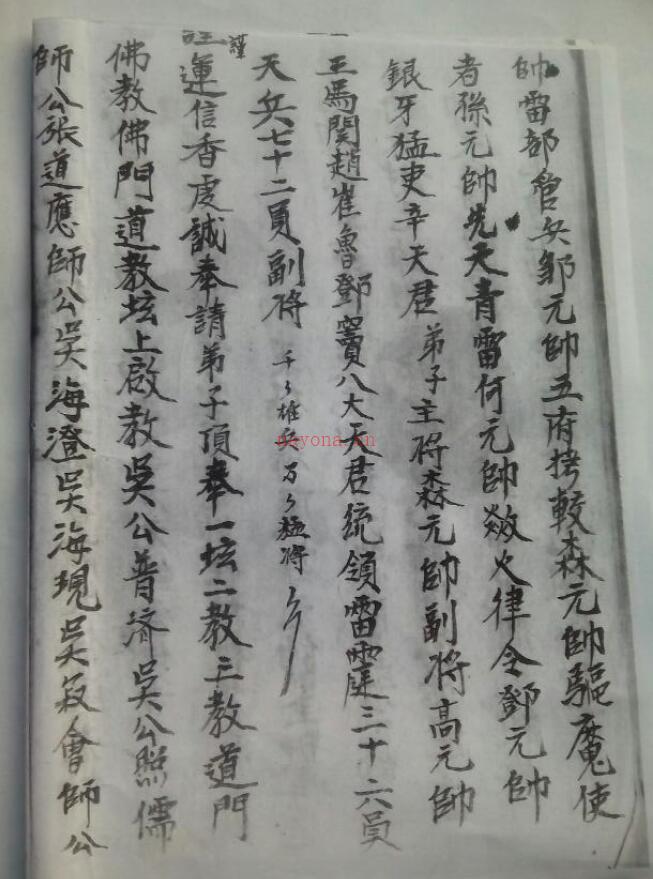 帅雷部管兵邹元帥五府拷較森元帥驅魔使
者孫元帥先天青雷何元帥燄火律令鄧元帥
銀牙猛吏辛天君弟子主将森元帥副将高元帥
王馬関趙崔魯鄧竇八大天君统領雷霆三十六員
天兵七十二員副将千〻雄兵万〻猛将
謹運信香虔誠奉請弟子頂奉一坛二教三教道門
佛教佛門道教坛上啟教吳公普济吳公照儒
師公張道應師公吳海澄吳海現吳會師公
nayona.cn